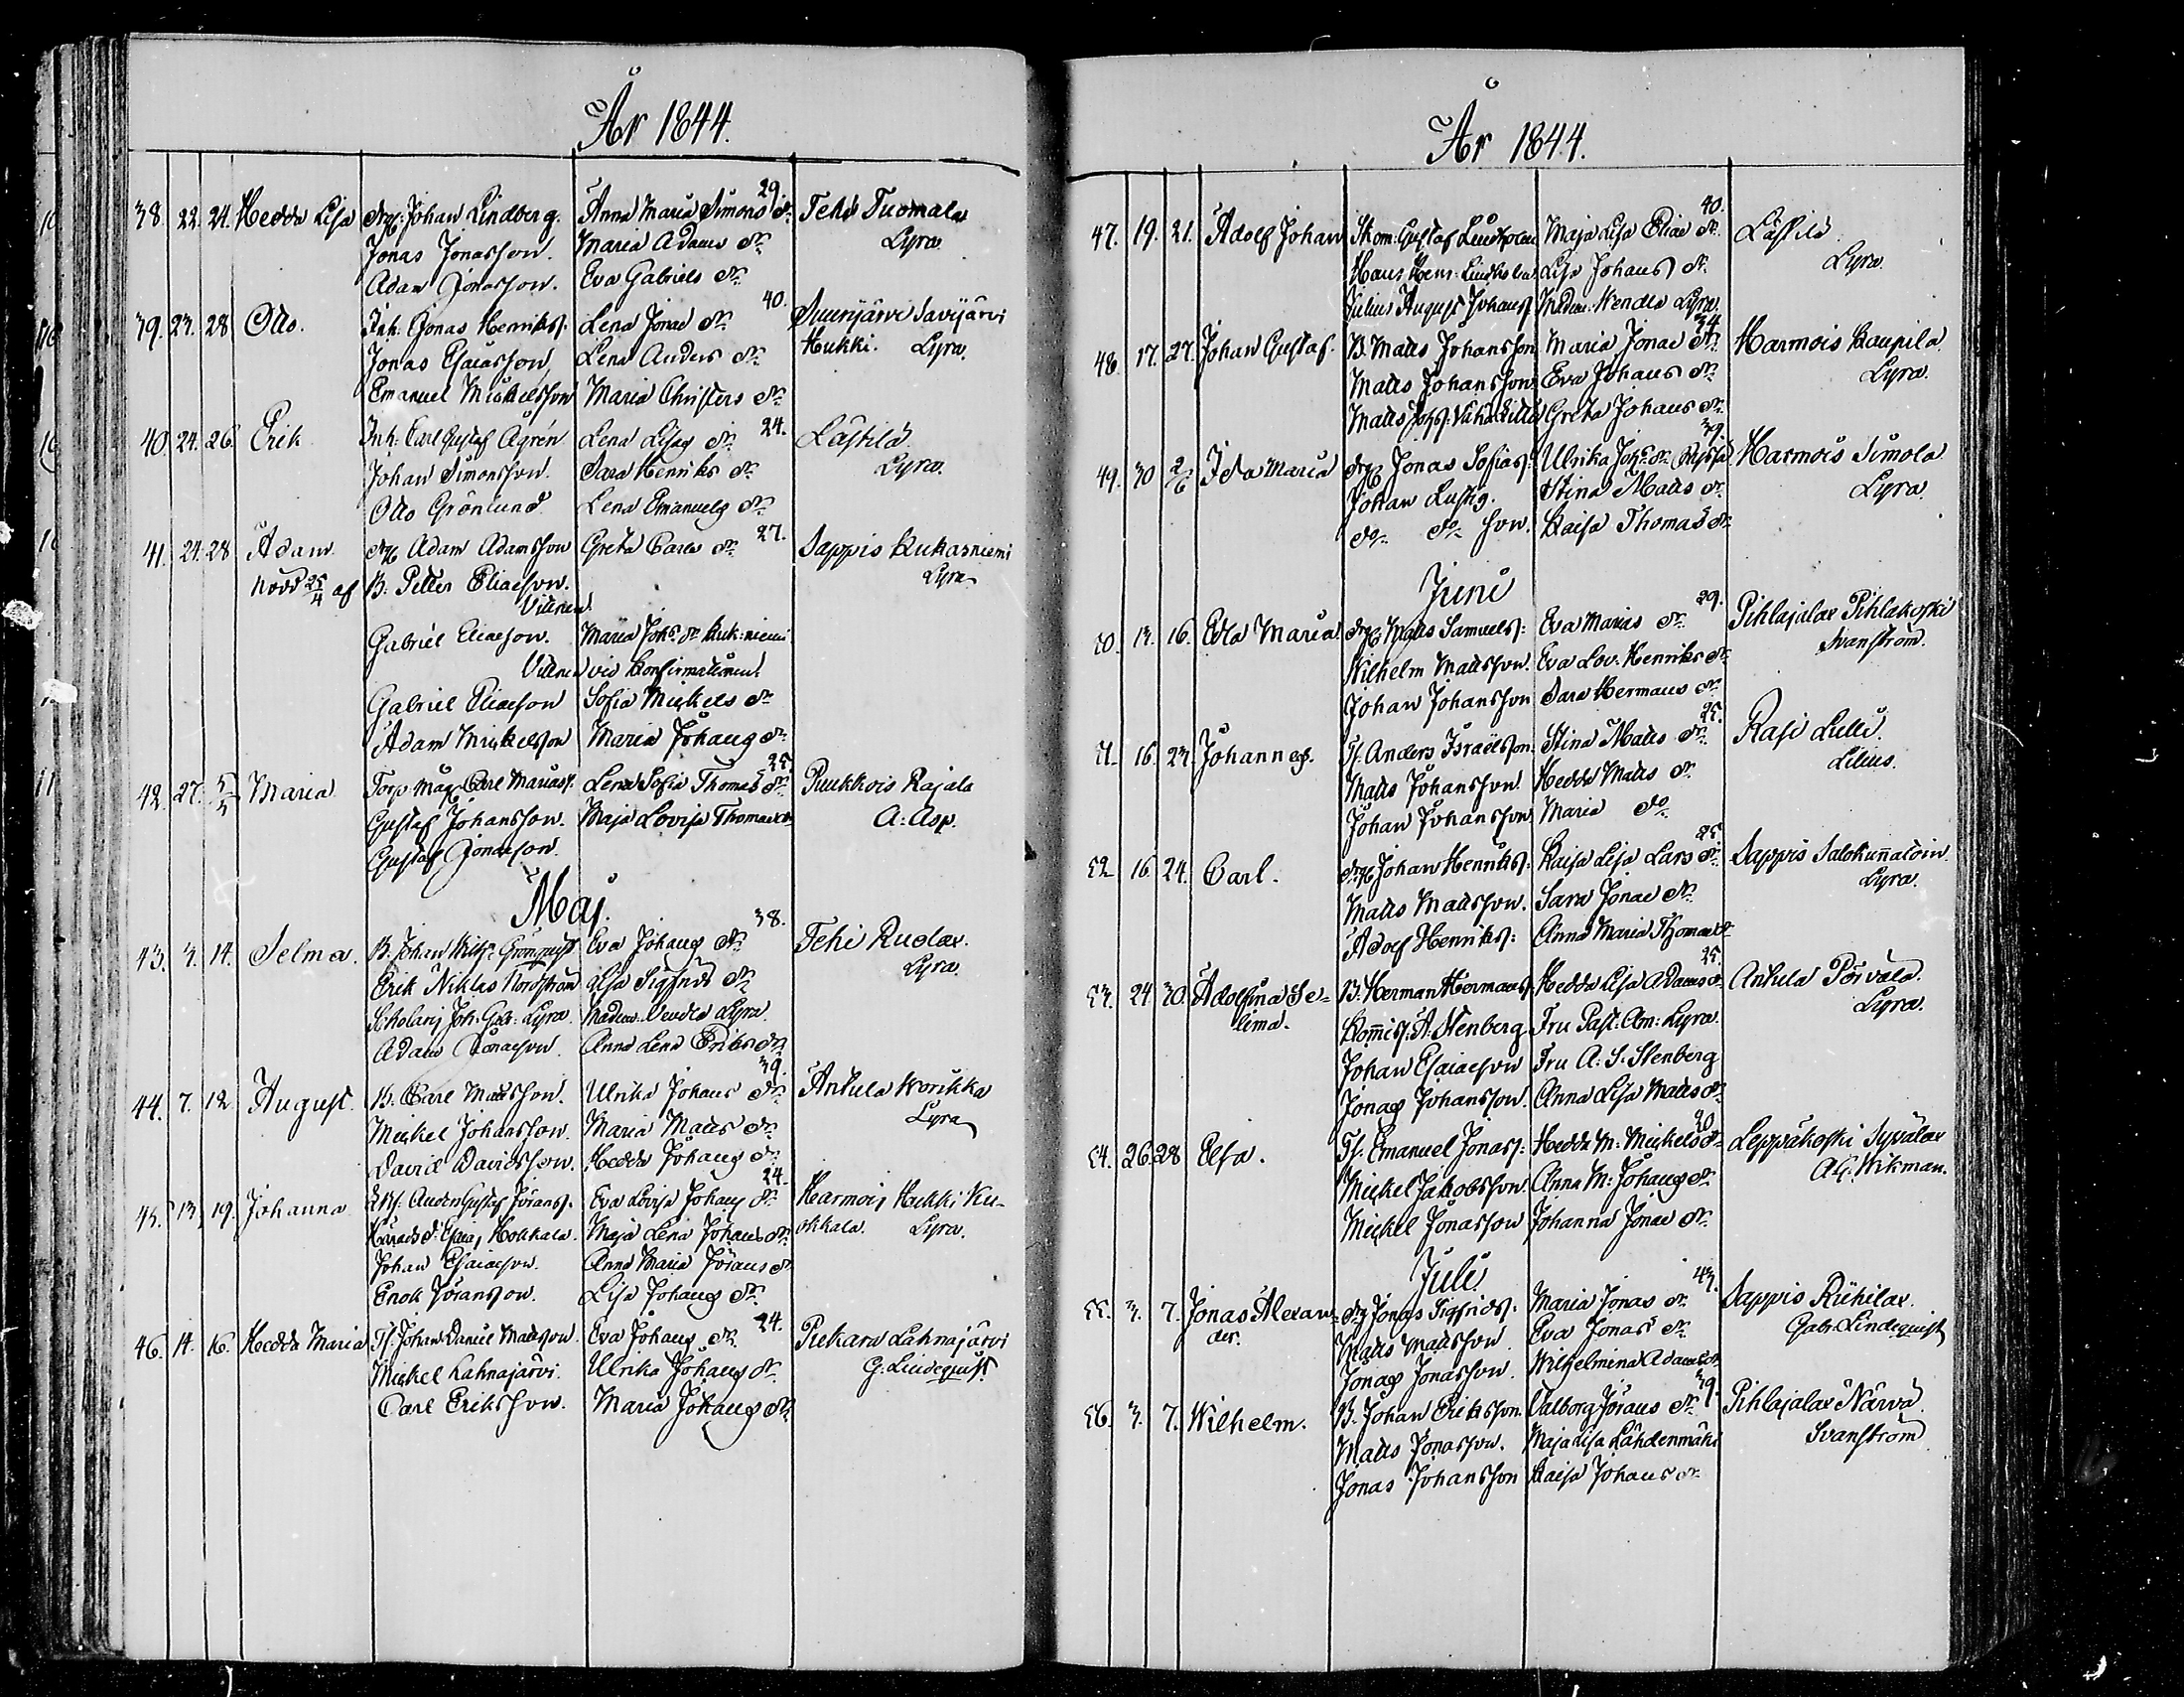 År 1844.
38. 22. 24. Hedda Lisa Drg: Johan Lindberg. Anna Maria Simons dr. 29. Tehi Tuomala
Jonas Jonasson. Maria Adams dr Lyra.
Adam Jonasson. Eva Gabriels dr
39. 23. 28 Otto. Inh: Jonas Henriks: Lena Jonae dr 40. Suurijärvi Savijärvi
Jonas Esaiasson Lena Anders dr Hukki. Lyra.
Emanuel Mickelsson Maria Christers dr
40. 24. 26. Erik Inh: Carl Gustaf Ågrén Lena Lisas dr 24. Lästilä
Johan Simonsson. Sara Henriks dr Lyra.
Otto Grönlund Lena Emanuels dr
41. 24. 28 Adam. Drg Adam Adamsson Greta Carls dr 27. Sappis Kukasniemi
Nödd 25/4 af B: Petter Eliaeson. Lyra
Vittnen
Gabriel Eliaeson. Maria Johs dr Kuk:niemi
Vittnen vid Konfirmationen
Gabriel Eliaeson Sofia Mickels dr
Adam Mickelsson Maria Johans dr
42. 27. 5/5 Maria Torp Måg Carl Mariass: Lena Sofia Thomas dr 25 Puukkois Rajala
Gustaf Johansson. Maja Lovisa Thomae dr A: Asp.
Gustaf Jonaeson.
Maj.
43. 3. 14. Selma. B. Johan Wilh: Grönquist Eva Johans dr 38. Tehi Rudax.
Erik Niklas Nordström Lisa Sigfrids dr Lyra.
Scholaris Joh: Gabr: Lyra. Madem: Vendla Lyra.
Adam Jonaeson Anna Lena Eriks dr
44. 7. 12 August. B. Carl Mattsson. Ulrika Johans dr 39. Antula Worikka
Mickel Johansson. Maria Matts dr Lyra
David Davidsson. Hedda Johans dr
45. 13. 19. Johanna Anders Gustaf Jöranss. Eva Lovisa Johans dr 24. Harmois Hukki Ku-
Esaias Hokkala. Maja Lena Johans dr okkala. Lyra.
Johan Esaiaeson. Anna Maria Jörans dr
Enok Jöransson. Lisa Johans dr
46. 14. 16. Hedda Maria Ts. Johan Daniel Mattsson. Eva Johans dr 24. Piekara Lahnajärvi
Mickel Lahnajärvi. Ulrika Johans dr G: Lindequist
Carl Eriksson. Maria Johans dr
År 1844.
47. 19. 21. Adolf Johan Skom: Gustaf Lindholm Maja Lisa Eliae dr. 40. Lästilä
Hans Henr: Lindholm Lisa Johans dr. Lyra.
Julius August Johans: Madem: Wendla Lyra.
48. 17. 27. Johan Gustaf. B. Matts Johansson Maria Jonae dr. 34 Harmois Kaupila
Matts Johansson Eva Johans dr Lyra.
Matts Johs: Greta Johans dr
49. 30 2/6 Ida Maria Drg Jonas Sofias: Ulrika Johs dr 39. Harmois Simola
Johan Lustig. Stina Matts dr Lyra
do do son. Kaisa Thomas dr
Juni
50. 13. 16. Edla Maria. Drg Matts Samuels: Eva Marias dr 29. Pihlajalax Pihlakoski
Wilhelm Mattsson. Eva Lov. Henriks dr Svanström.
Johan Johansson Sara Hermans dr
51. 16. 23. Johannes. Ts. Anders Israëlsson. Stina Matts dr 25. Rasi Lulli.
Matts Johansson. Hedda Matts dr Lilius.
Johan Johansson Maria do
52 16 24. Carl. Drg Johan Henriks: Kaisa Lisa Lars dr 25 Sappis Salokunnaloin
Matts Mattsson. Sara Jonae dr Lyra.
Adolf Henriks: Anna Maria Thomae dr
53. 24 30. Adolfina Se- B. Herman Hermans: Hedda Lisa Adams dr 25. Antula Pörvälä.
lima. Kommis: A: Stenberg Fru Past: Am: Lyra. Lyra.
Johan Esaiaeson Fru A: S: Stenberg
Jonas Johansson. Anna Lisa Matts dr
54. 26. 28 Elsa. Ts. Emanuel Jonass: Hedda M: Mickels dr 20 Leppäkoski Sysälax
Mickel Jakobsson. Anna M: Johans dr A G: Wikman.
Mickel Jonasson Johanna Jonae dr
Juli
55. 3. 7. Jonas Alexan- Drg Jonas Sigfrids: Maria Jonas dr 43. Sappis Riihilax.
der. Matts Mattsson. Eva Jonas dr Gabr: Lindequist
Jonas Jonasson. Wilhelmina Adams dr
56. 3. 7. Wilhelm. B. Johan Eriksson. Valborg Jörans dr 39. Pihlajalax Närvä.
Matts Jonasson. Maja Lisa Lähdenmäki Svanström
Jonas Johansson Kaisa Johans dr